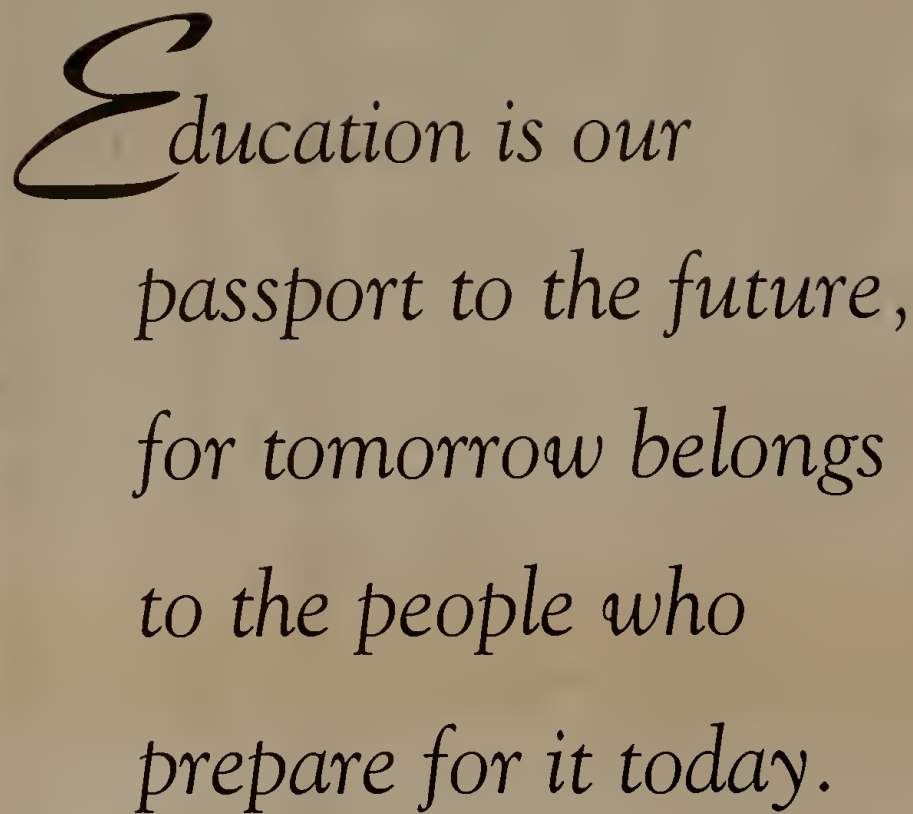 Education is our
passport to the future,
for tomorrow belongs
to the people who
prepare for it today.